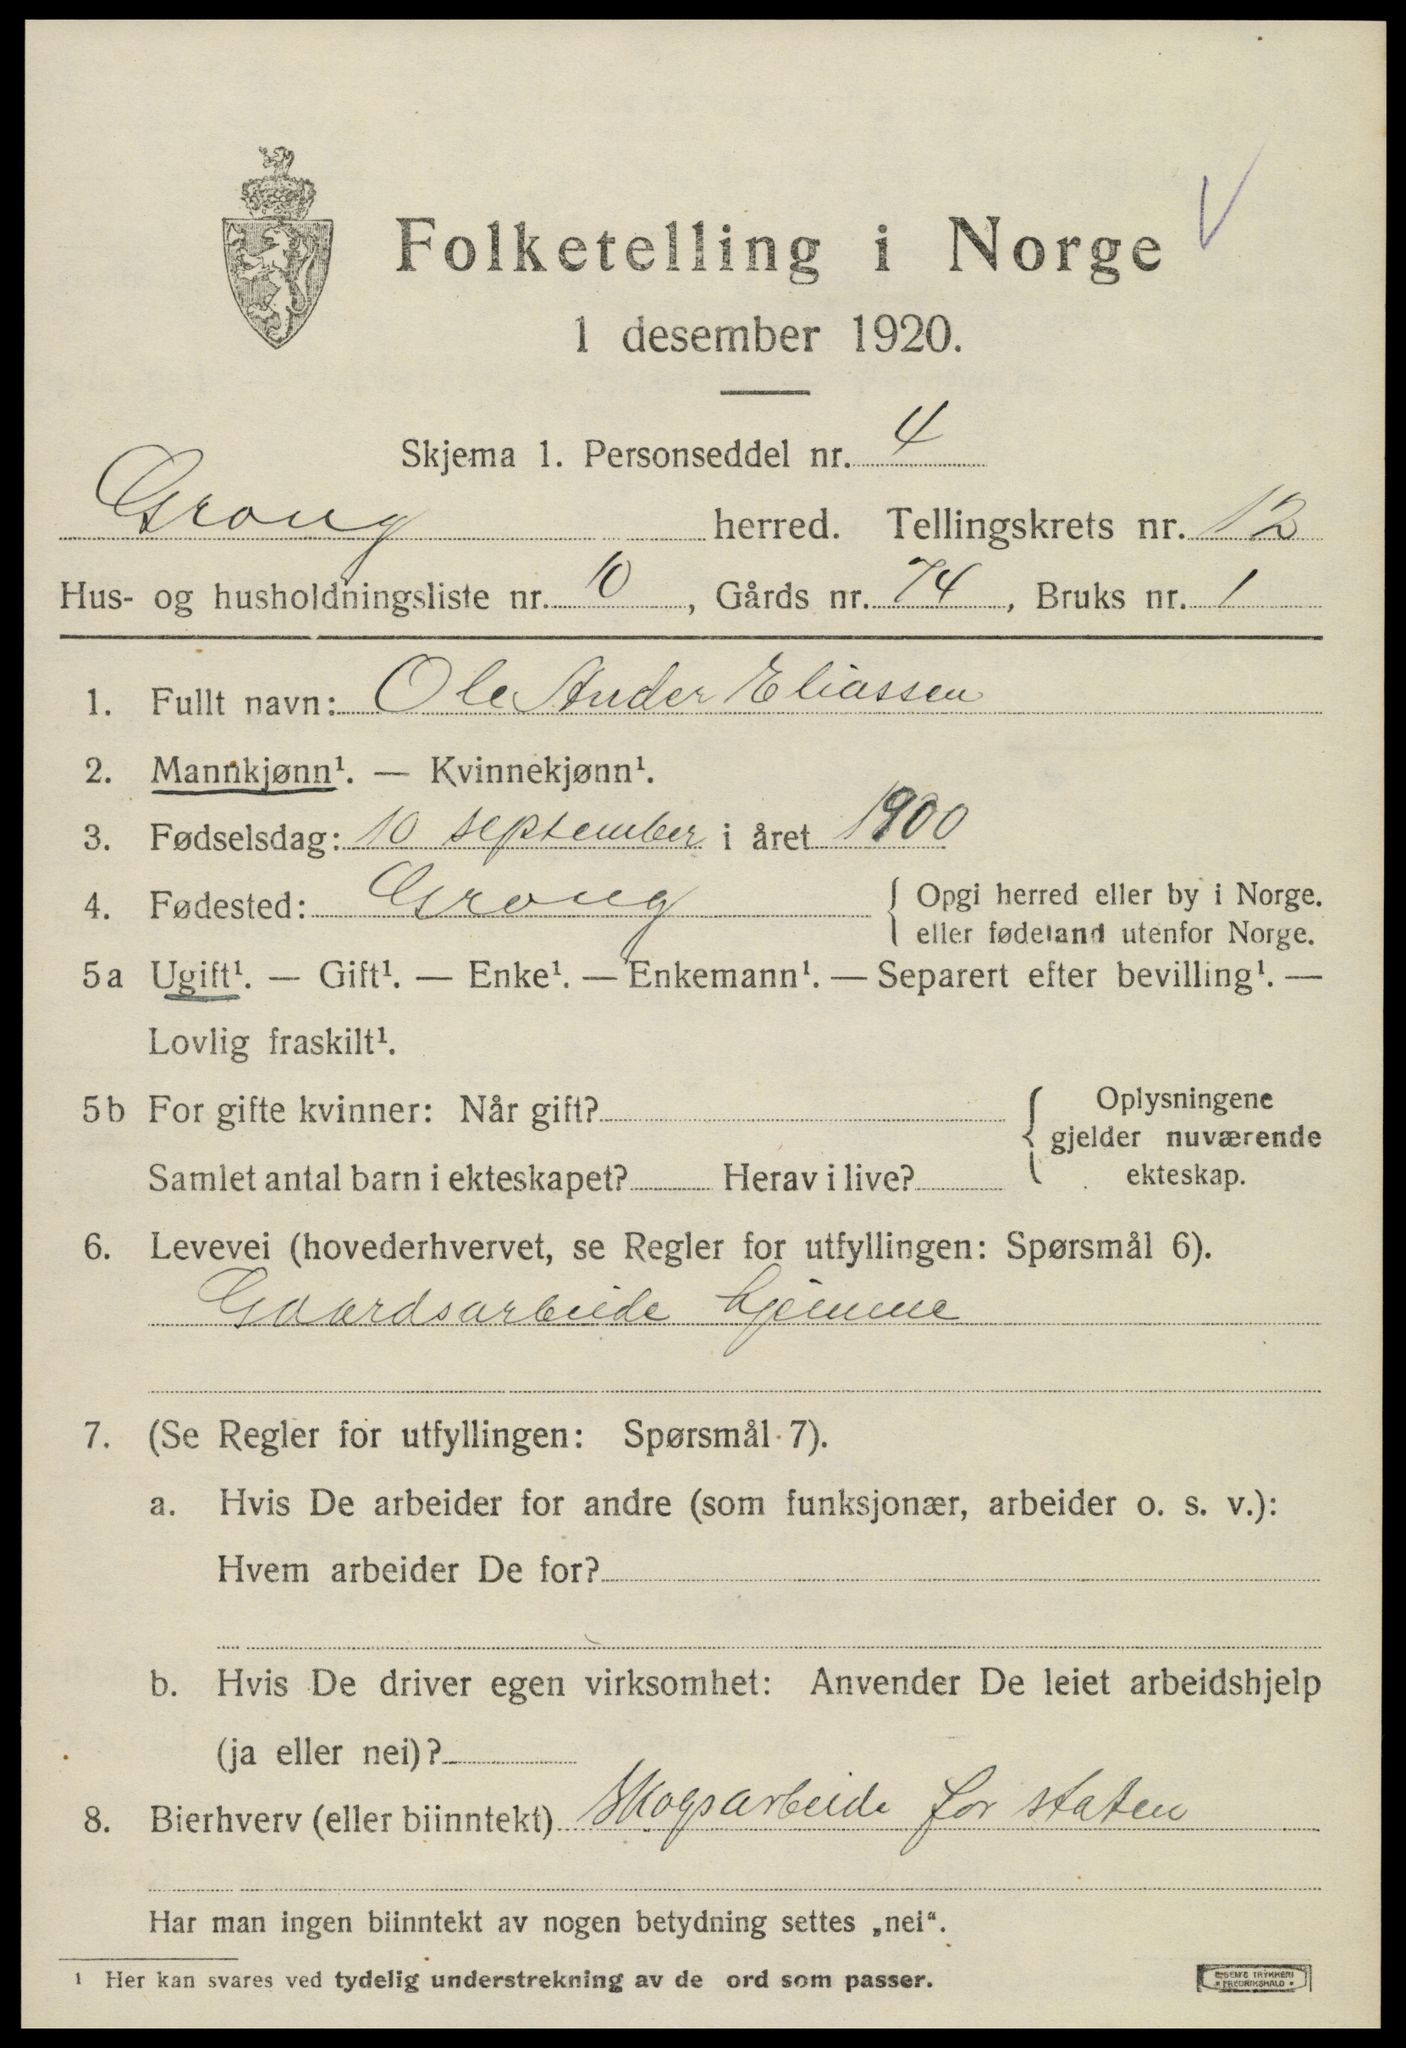 Folketelling i Norge
1 desember 1920.
Skjema 1. Personseddel nr. 4
Grong herred. Tellingskrets nr. 12
Hus- og husholdningsliste nr. 10, Gårds nr. 74, Bruks nr. 1
1. Fullt navn: Ole Ander Eliassen
2. Mannkjønn¹. — Kvinnekjønn¹.
3. Fødselsdag: 10 september i året 1900
4. Fødested: Grong { Opgi herred eller by i Norge.
eller fødeland utenfor Norge.
5a Ugift¹. — Gift¹. — Enke¹. — Enkemann¹. — Separert efter bevilling¹. —
Lovlig fraskilt¹.
5b For gifte kvinner: Når gift? { Oplysningene
gjelder nuværende
Samlet antal barn i ekteskapet? Herav i live? ekteskap.
6. Levevei (hovederhvervet, se Regler for utfyllingen: Spørsmål 6).
Gaardsarbeide hjemme
7. (Se Regler for utfyllingen: Spørsmål 7).
a. Hvis De arbeider for andre (som funksjonær, arbeider o. s. v.):
Hvem arbeider De for?
b. Hvis De driver egen virksomhet: Anvender De leiet arbeidshjelp
(ja eller nei)?
8. Bierhverv (eller biinntekt) Skogsarbeide for staten
Har man ingen biinntekt av nogen betydning settes „nei“.
¹ Her kan svares ved tydelig understrekning av de ord som passer.
TRYKKERI
FREDRIKSHALD